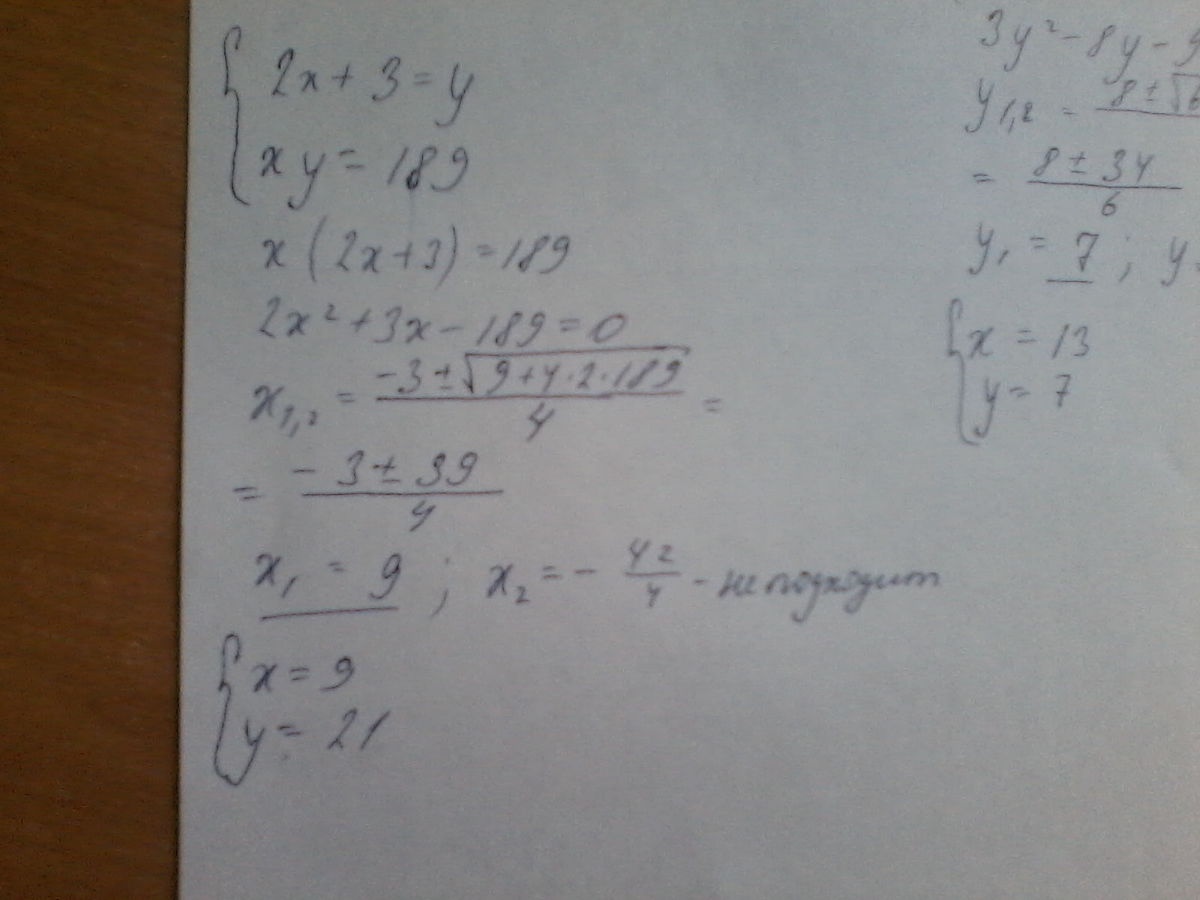 2x + 3 = y
xy = 189
x (2x+3) = 189
2x² + 3x - 189 = 0
x₁,₂ = (-3 ± √(9+4·2·189))/4 =
= (-3 ± 39)/4
x₁ = 9 ; x₂ = - 42/4 - не подходит
x = 9
y = 21
3y² - 8y - 9
y₁,₂ = 8 ± √6
= (8 ± 34)/6
y₁ = 7 ; y
x = 13
y = 7